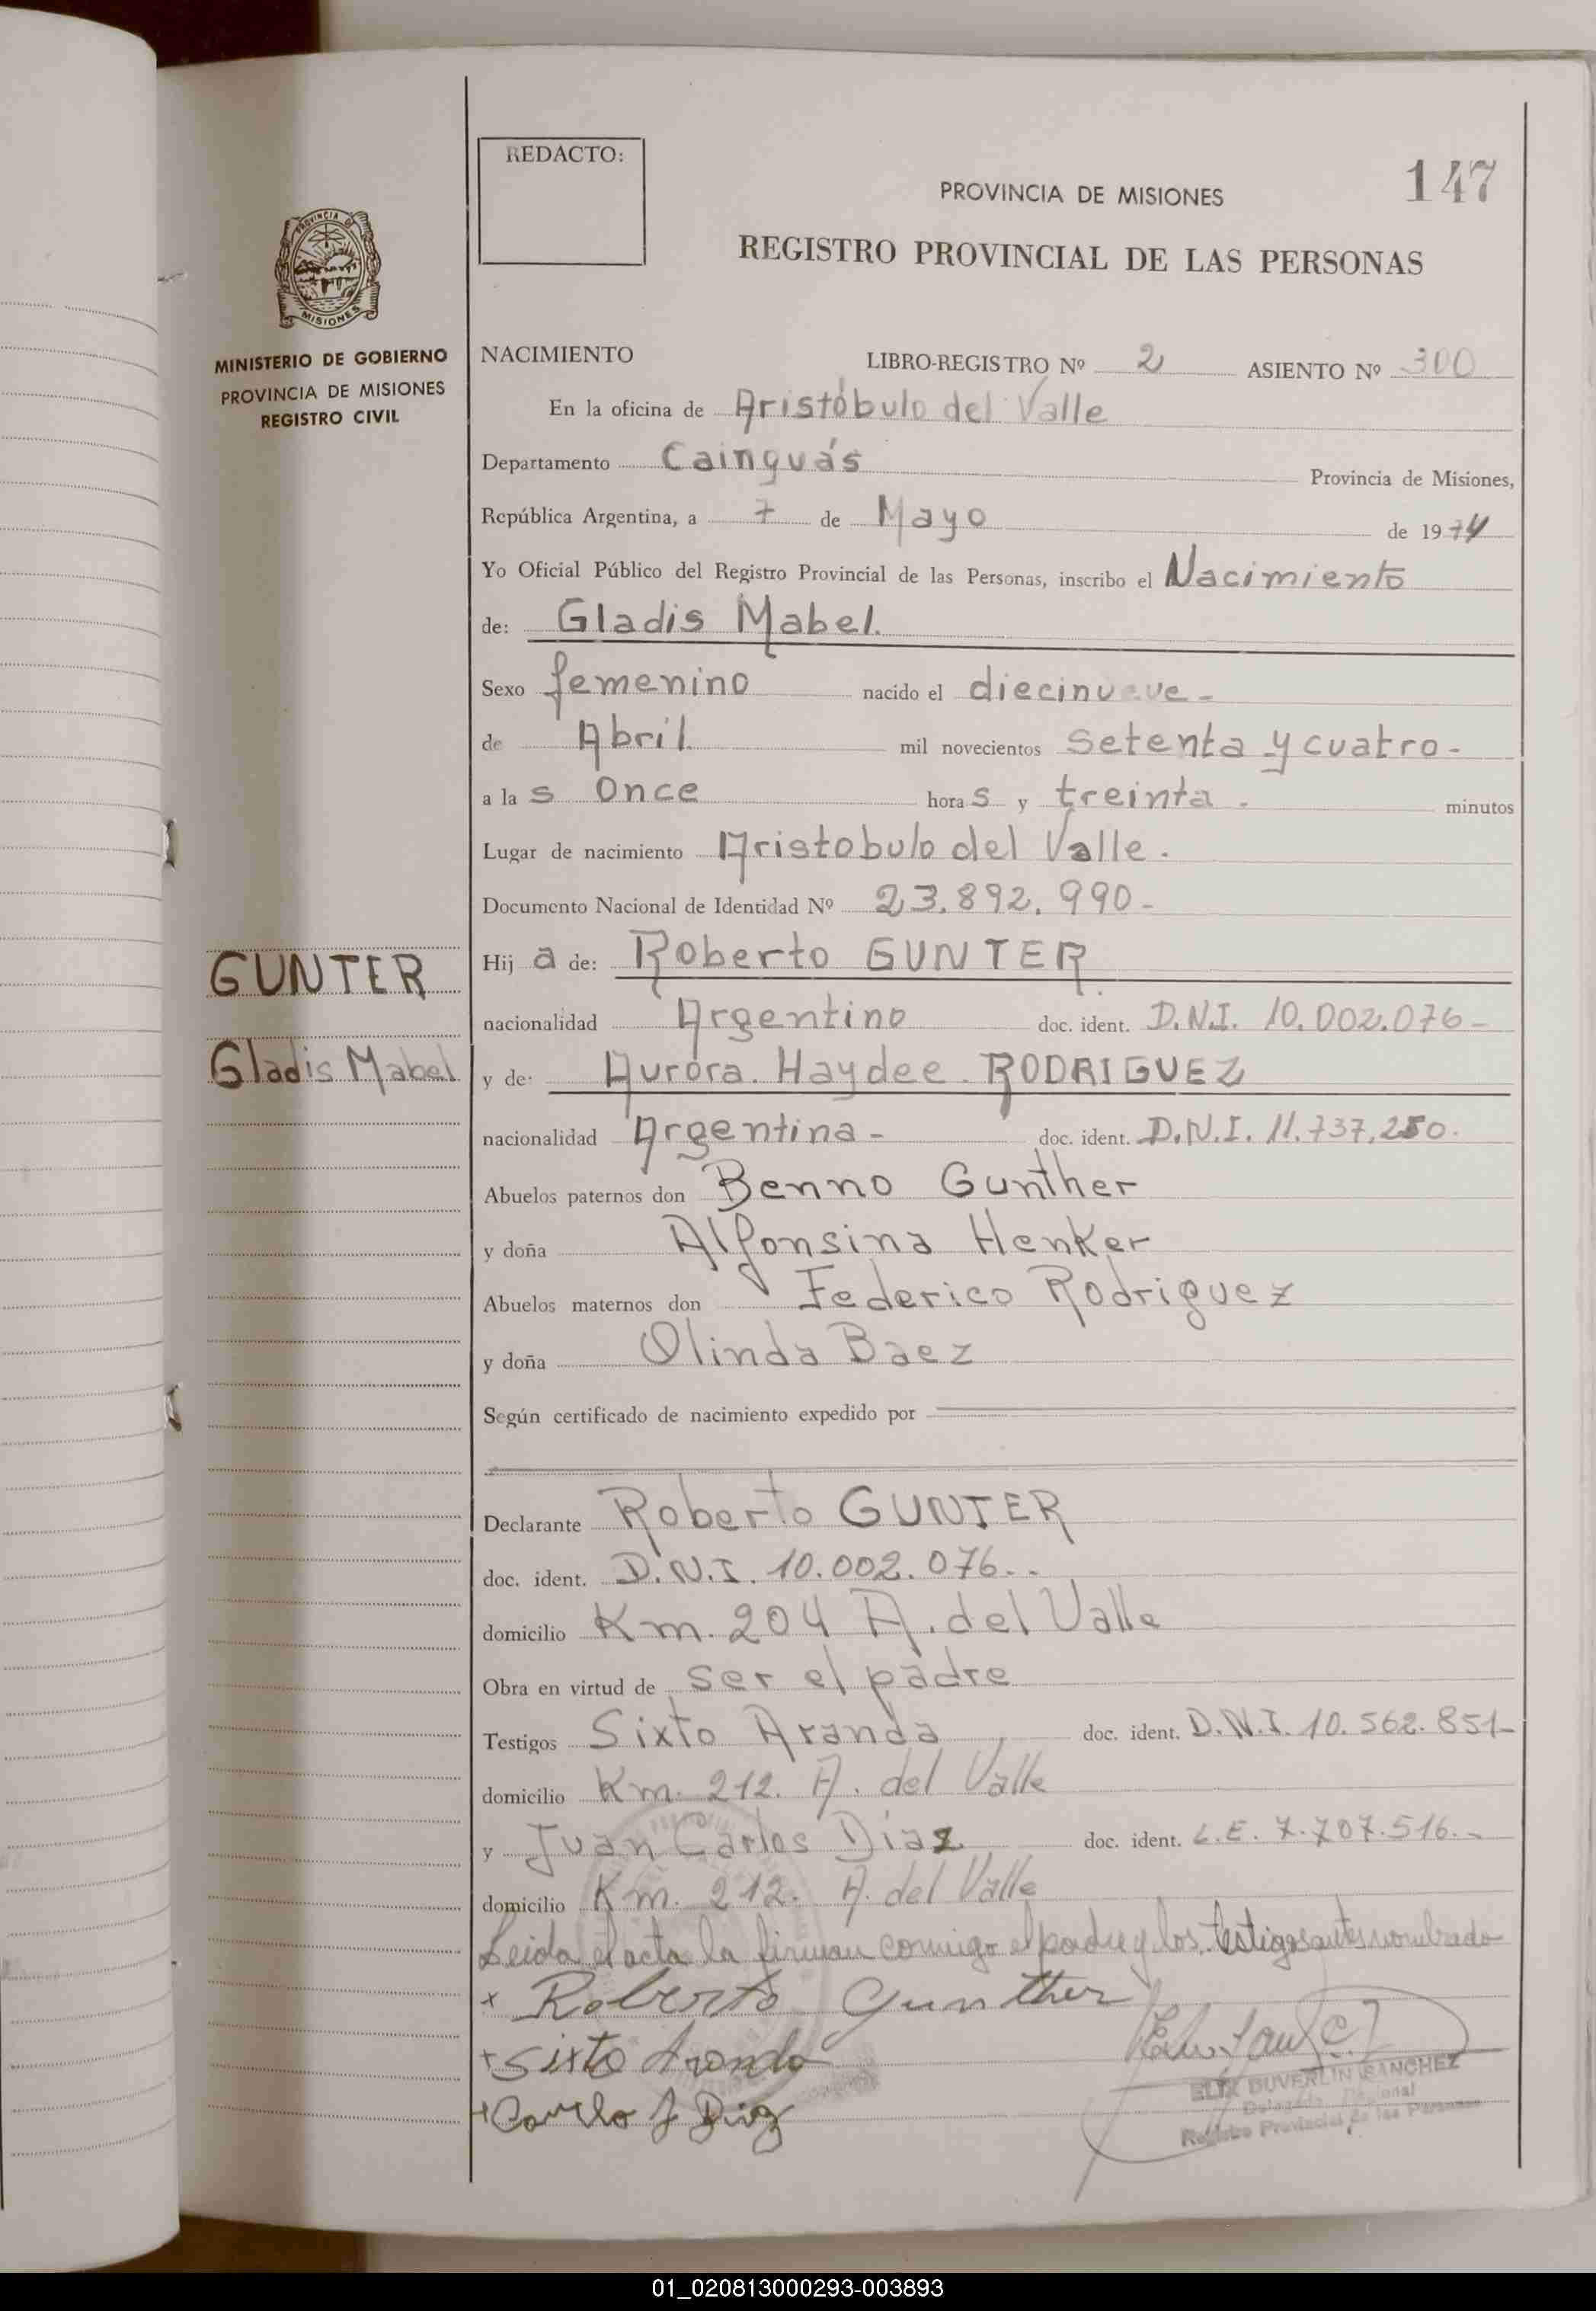 REDACTO:
147
PROVINCIA DE MISIONES
REGISTRO PROVINCIAL DE LAS PERSONAS
PROVINCIA DE
MISIONES
MINISTERIO DE GOBIERNO
PROVINCIA DE MISIONES
REGISTRO CIVIL
NACIMIENTO LIBRO-REGISTRO Nº 2 ASIENTO Nº 300
En la oficina de Aristóbulo del Valle
Departamento Cainguás Provincia de Misiones,
República Argentina, a 7 de Mayo de 1974
Yo Oficial Público del Registro Provincial de las Personas, inscribo el Nacimiento
de: Gladis Mabel.
Sexo femenino nacido el diecinueve -
de Abril mil novecientos setenta y cuatro -
a las Once horas y treinta - minutos
Lugar de nacimiento Aristobulo del Valle.
Documento Nacional de Identidad Nº 23.892.990 -
GUNTER
Gladis Mabel
Hija de: Roberto GUNTER
nacionalidad Argentino doc. ident. D.N.I. 10.002.076 -
y de: Aurora Haydee RODRIGUEZ
nacionalidad Argentina - doc. ident. D.N.I. 11.737.250.
Abuelos paternos don Benno Gunther
y doña Alfonsina Henker
Abuelos maternos don Federico Rodriguez
y doña Olinda Baez
Según certificado de nacimiento expedido por
Declarante Roberto GUNTER
doc. ident. D.N.I. 10.002.076 -
domicilio Km. 204 A. del Valle
Obra en virtud de ser el padre
Testigos Sixto Aranda doc. ident. D.N.I. 10.562.851 -
domicilio Km. 212. A. del Valle
y Juan Carlos Diaz doc. ident. L.E. 7.707.516. -
domicilio Km. 212. A. del Valle
Leida el acta la firman conmigo el padre y los testigos antes nombrado
x Roberto Gunther
+ Sixto Aranda
+ Carlo J Diaz
ELIX DUVERLIN SANCHEZ
Registro Provincial de las Personas
01_020813000293-003893